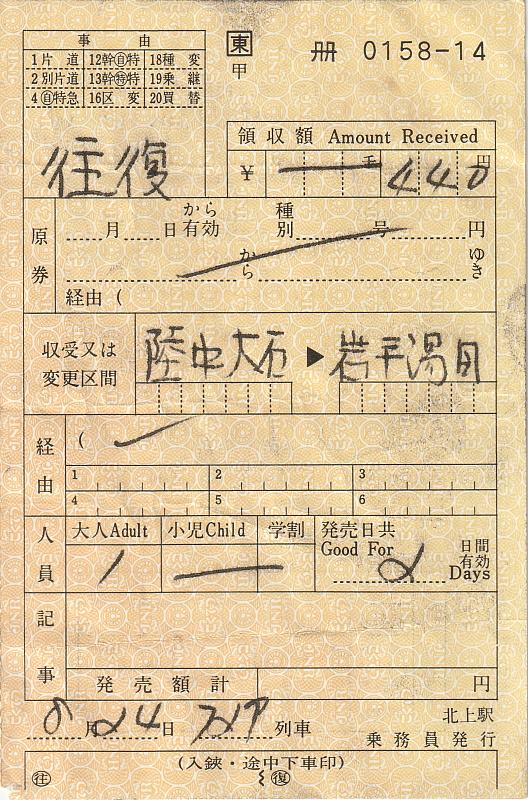 事由
東
甲
冊 0158-14
1片道 12幹自特 18種変
2別片道 13幹特特 19乗継
4自特急 16区変 20買替
往復
領収額 Amount Received
¥ 千 440 円
原券
月 日 から有効 種別 号 円
から ゆき
経由 (
収受又は変更区間 陸中大石 ▶ 岩手湯田
経由 (
1 2 3
4 5 6
人員 大人Adult 小児Child 学割 発売日共
Good For 2 日間有効 Days
1
記事
発売額計 円
8月24日 列車
北上駅
乗務員発行
(入鋏・途中下車印)
往 復